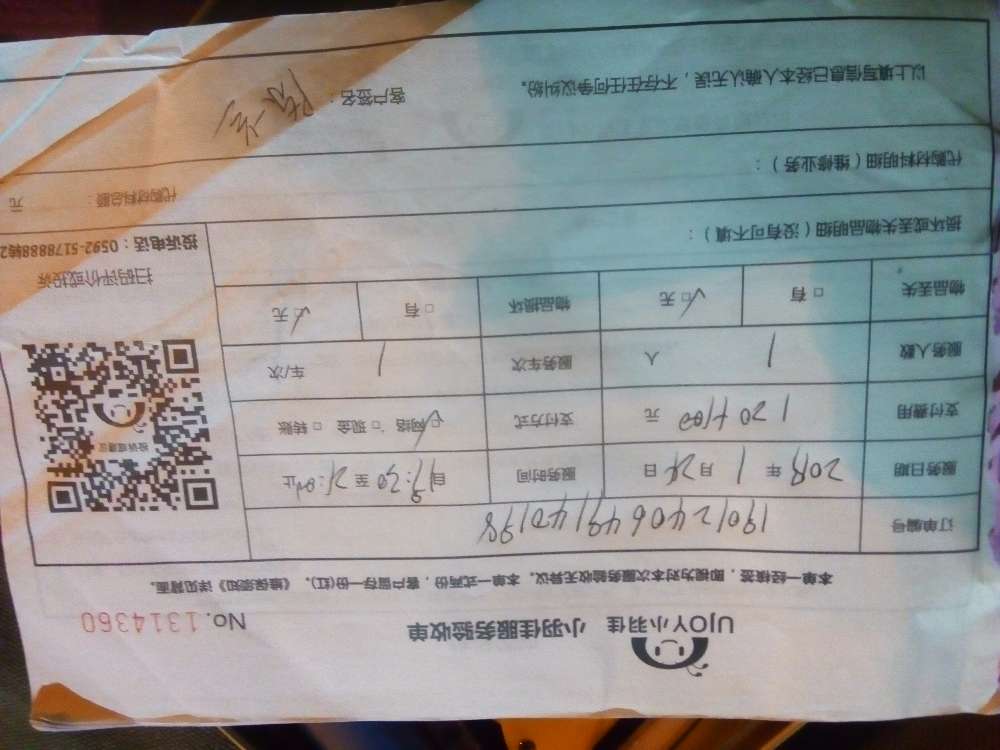 UJOY小羽佳 小羽佳服务验收单 No.1314360
本单一经核签,即视为对本次服务验收无异议。本单一式两份,客户留存一份(红)。《维保须知》详见背面。
订单编号 1901240649140198
服务日期 2019年1月24日 服务时间 自 至 止
支付费用 120+100 元 支付方式 ☑网络 □现金 □转账
服务人数 1 人 服务车次 1 车/次
物品丢失 □有 ☑无 物品损坏 □有 ☑无
投诉或建议
扫码评价或投诉
投诉电话:0592-5178888转2
损坏或丢失物品明细(没有可不填):
代购材料明细(维修业务): 代购材料总额: 元
以上填写信息已经本人确认无误,不存在任何争议纠纷。 客户签名: